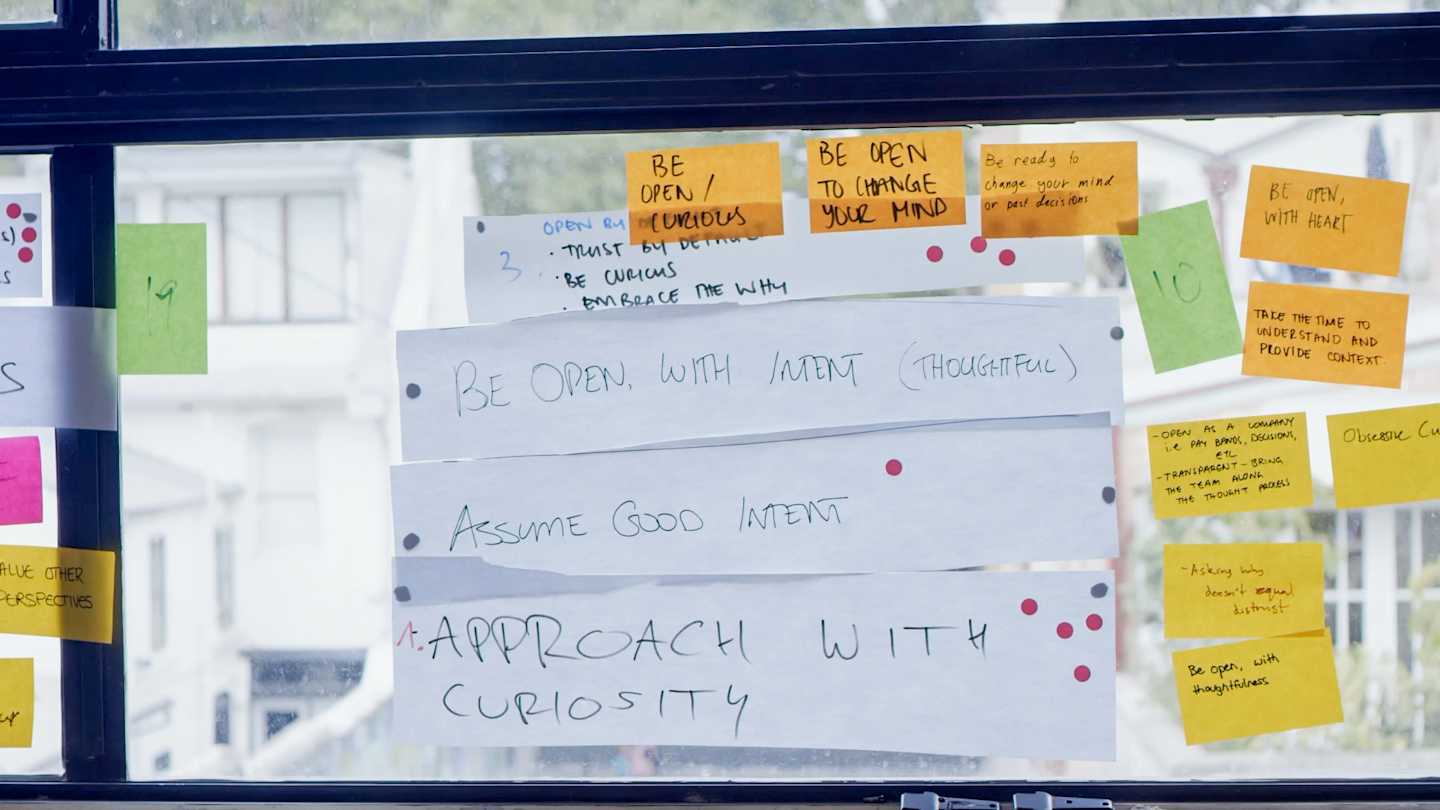 S)
S
S
ALUE OTHER
PERSPECTIVES
19
BE
OPEN/
CURIOUS
BE OPEN
TO CHANGE
YOUR MIND
Be ready to
change your mind
or past decisions
3
OPEN BY
• TRUST BY
• BE CURIOUS
• EMBRACE THE WHY
BE OPEN, WITH INTENT (THOUGHTFUL)
ASSUME GOOD INTENT
1. APPROACH WITH
CURIOSITY
10
BE OPEN,
WITH HEART
TAKE THE TIME TO
UNDERSTAND AND
PROVIDE CONTEXT.
- OPEN AS A COMPANY
i.e PAY BANDS, DECISIONS,
ETC
- TRANSPARENT - BRING
THE TEAM ALONG
THE THOUGHT PROCESS
Obsessive Cu
- Asking why
doesn't equal
distrust
Be open, with
thoughtfulness